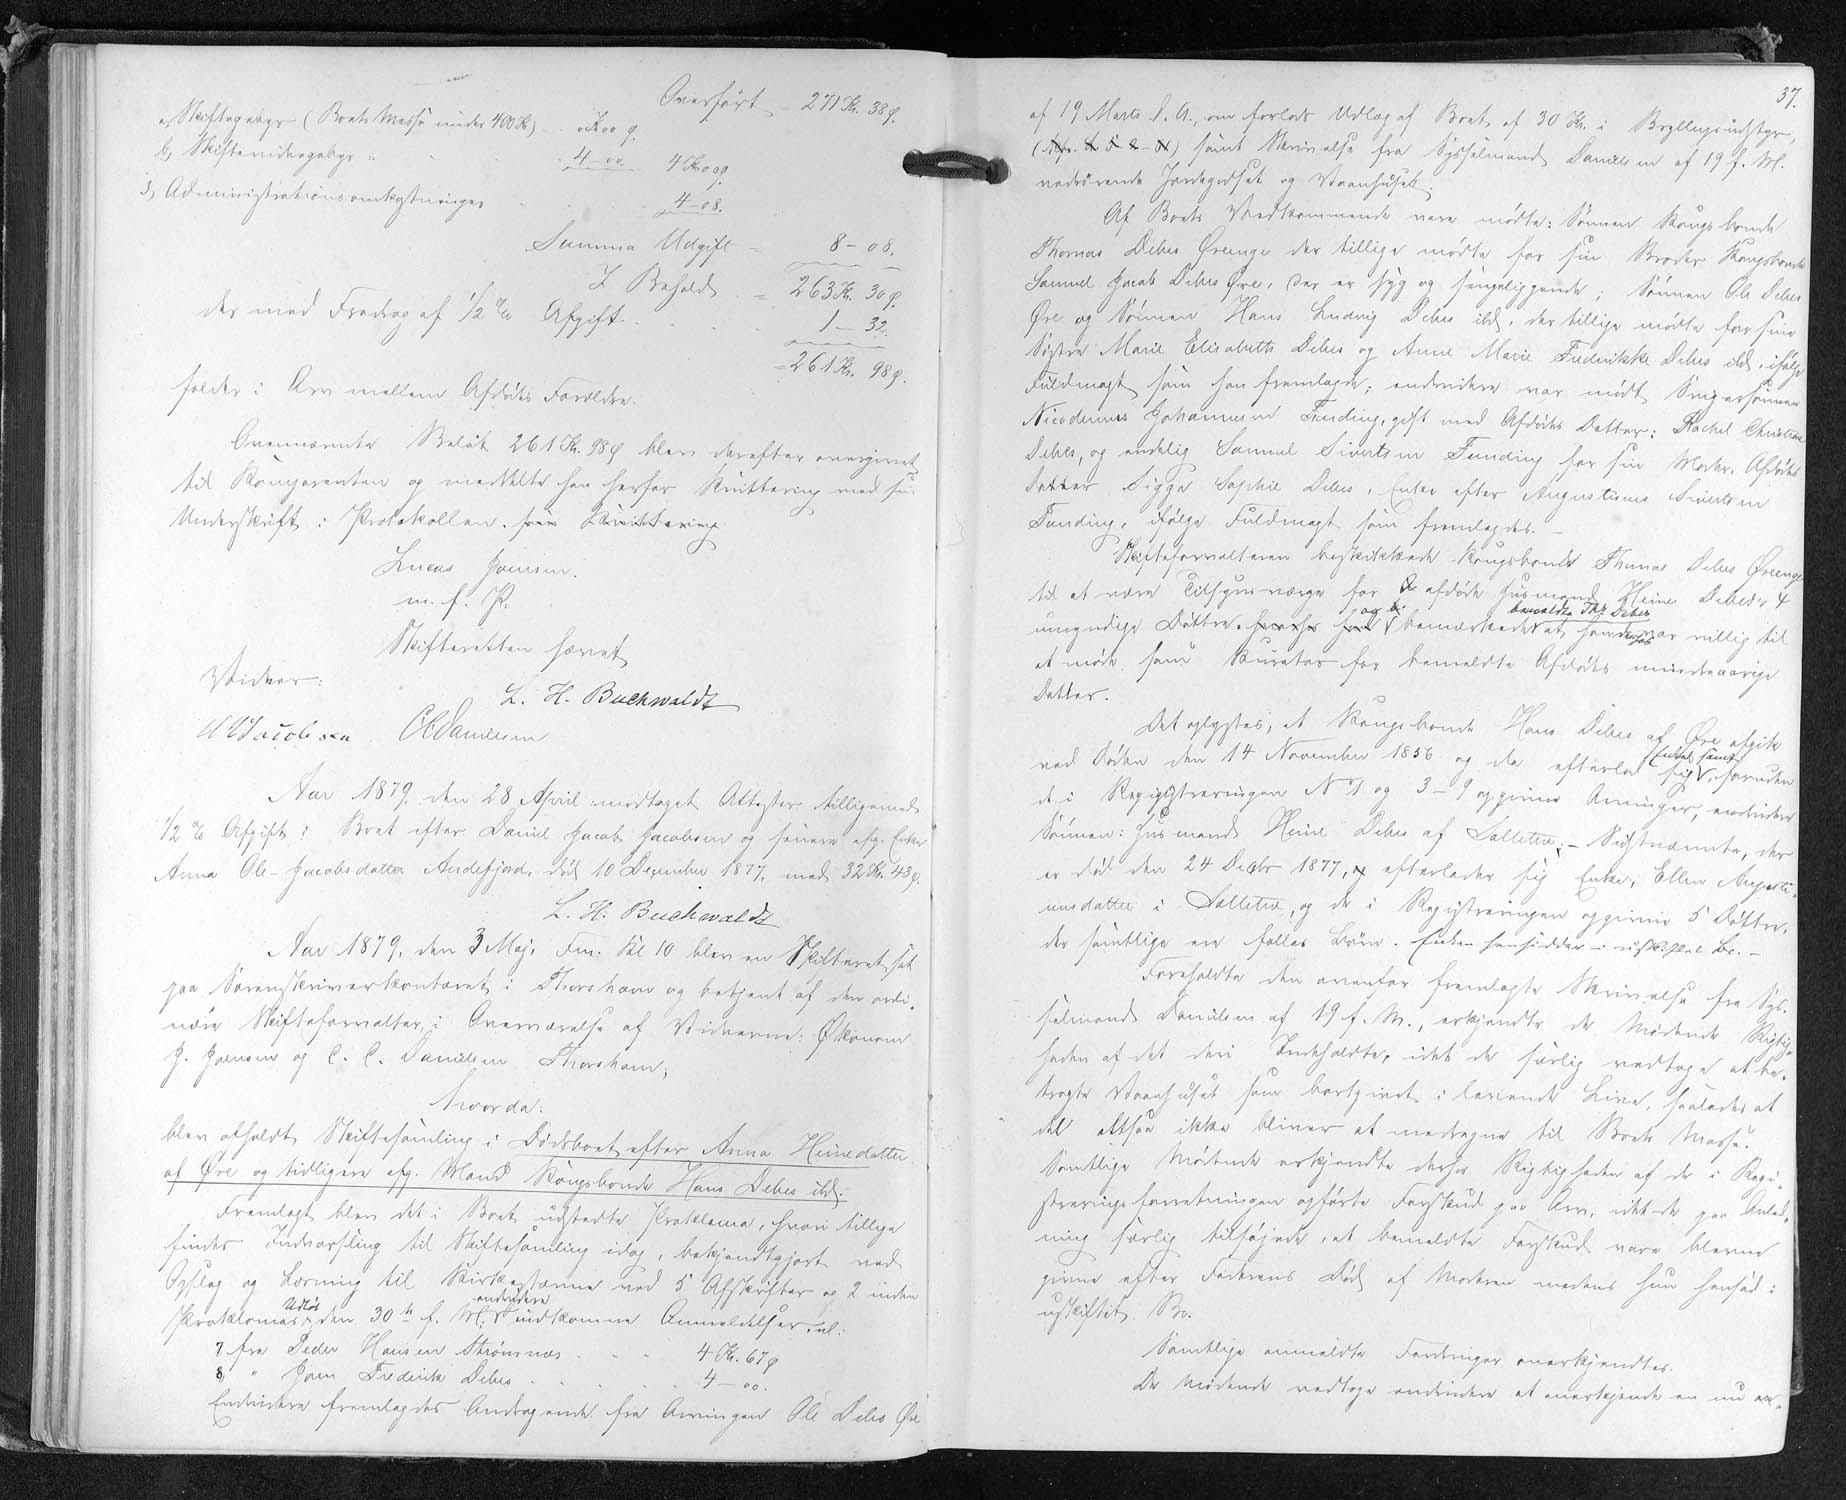 Overført 271 Kr. 38 Ø.
a, Skiftegebyr (Boets Masse under 400 Kr) . . 0 Kr 00 Ø.
b, Skifteindregebyr : . . 4 - 00. 4 Kr. 00 Ø.
3, Administrationsomkostninger . . 4 - 08.
Summa Udgift = 8 - 08.
I Behold = 263 Kr. 30 Ø.
der med Fradrag af 1/2 % Afgift . . . . 1 - 32.
= 261 Kr. 98 Ø.
falder i Arv mellem Afdødes Forældre.
Ovennævnte Beløb 261 Kr. 98 Ø blev derefter overgivet
til Komparenten og meddelte han herfor Kvittering med sin
Underskrift i Protokollen. som Kvittering
Lucas Joensen.
m. f. P.
Skifteretten hævet
L. H. Buchwaldt
Vidner:
Jacobsen C C Danielsen
Aar 1879, den 28 April modtaget Attester tilligemed
1/2 % Afgift i Boet efter Daniel Jacob Jacobsen og senere afg. Enke
Anna Ole-Jacobsdatter Andefjord, død 10 December 1877, med 32 Kr. 43 Ø.
L. H. Buchwaldt
Aar 1879, den 3 Maj, Fm. Kl 10 blev en Skifteret sat
paa Sorenskriverkontoret i Thorshavn og betjent af den ordi-
nære Skifteforvalter, i Overværelse af Vidnerne: Økonom
J. Joensen og C. C. Danielsen Thorshavn,
hvorda:
blev afholdt Skiftesamling i Dødsboet efter Anna Heinedatter
af Øre og tidligere afg. Mand Kongsbonde Hans Debes ibd.
Fremlagt blev det i Boet udstedte Proklama, hvori tillige
findes Indvarsling til Skiftesamling idag, bekjendtgjort ved
Opslag og Læsning til Kirkestævne med 5 Afskrifter og 2 inden
Proklamas Udløb den 30te f. M. endvidere indkomne Anmeldelser, nl:
7 fra Peder Hansen Strømnæs . . . 4 Kr. 67 Ø
8, " Joen Frederik Debes . . . . . 4 - 00.
Endvidere fremlagdes Andragende fra Arvingen Ole Debes Øre
37.
af 19 Marts d. A., om forlods Udlæg af Boet af 30 Kr. i Bryllupsudstyr,
samt Skrivelse fra Sysselmand Danielsen af 19 f. M.
vedrørende Jordegodset og Vaanhuset.
Af Boets Vedkommende vare mødte: Sønnen Kongsbonde
Thomas Debes Øreenge der tillige mødte for sin Broder Kongsbonde
Samuel Jacob Debes Øre, der er syg og sengeliggende; Sønnen Ole Debes
Øre og Sønnen Hans Ludvig Debes ibd, der tillige mødte for sine
Søstre Marie Elisabeth Debes og Anne Marie Frederikke Debes ibd, ifølge
Fuldmagt som han fremlagde; endvidere var mødt Svigersønnen
Nicodemus Johannesen Funding, gift med Afdødes Datter: Rachel Christine
Debes, og endelig Samuel Sivertsen Funding for sin Moder, Afdødes
Datter Sigga Sophie Debes, Enke efter Augustinus Sivertsen
Funding, ifølge Fuldmagt som fremlagdes. -
Skifteforvalteren beskikkede Kongsbonde Thomas Debes Øreenge
til at være Tilsynsværge for afdøde Husmand Heine Debes's 4
umyndige Døttre, og bemærkede bemeldte Ths. Debes at han var villig til
at møde som Kurator for bemeldte Afdødes mindreaarige
Datter.
Det oplystes, at Kongsbonde Hans Debes af Øre afgik
ved Døden den 14 November 1856 og da efterlod sig Enken samt, foruden
de i Registreringen No 1 og 3 - 9 opgivne Arvinger, endvidere
Sønnen: Husmand Heine Debes af Selletræ; - Sidstnævnte, der
er død den 24 Decbr 1877, efterlader sig Enke, Ellen Augusti-
nusdatter i Selletræ, og de i Registreringen opgivne 5 Døttre,
der samtlige ere fælles Børn. Enken hensidder i uskiftet Bo. -
Foreholdte den ovenfor fremlagte Skrivelse fra Sys-
selmand Danielsen af 19 f. M., erkjendte de Mødende Rigtig-
heden af det deri Indeholdte, idet de særlig vedtoge at be-
tragte Vaanhuset som bortgivet i levende Live, saaledes at
det altsaa ikke bliver at medregne til Boets Masse.
Samtlige Mødende erkjendte derhos Rigtigheden af de i Regi-
streringsforretningen opførte Forskud paa Arv, idet de paa Anled-
ning særlig tilføjede, at bemeldte Forskud vare blevne
givne efter Faderens Død af Moderen medens hun hensad i
uskiftet Bo.
Samtlige anmeldte Fordringer anerkjendtes.
De Mødende vedtoge endvidere at anerkjende en nu an-